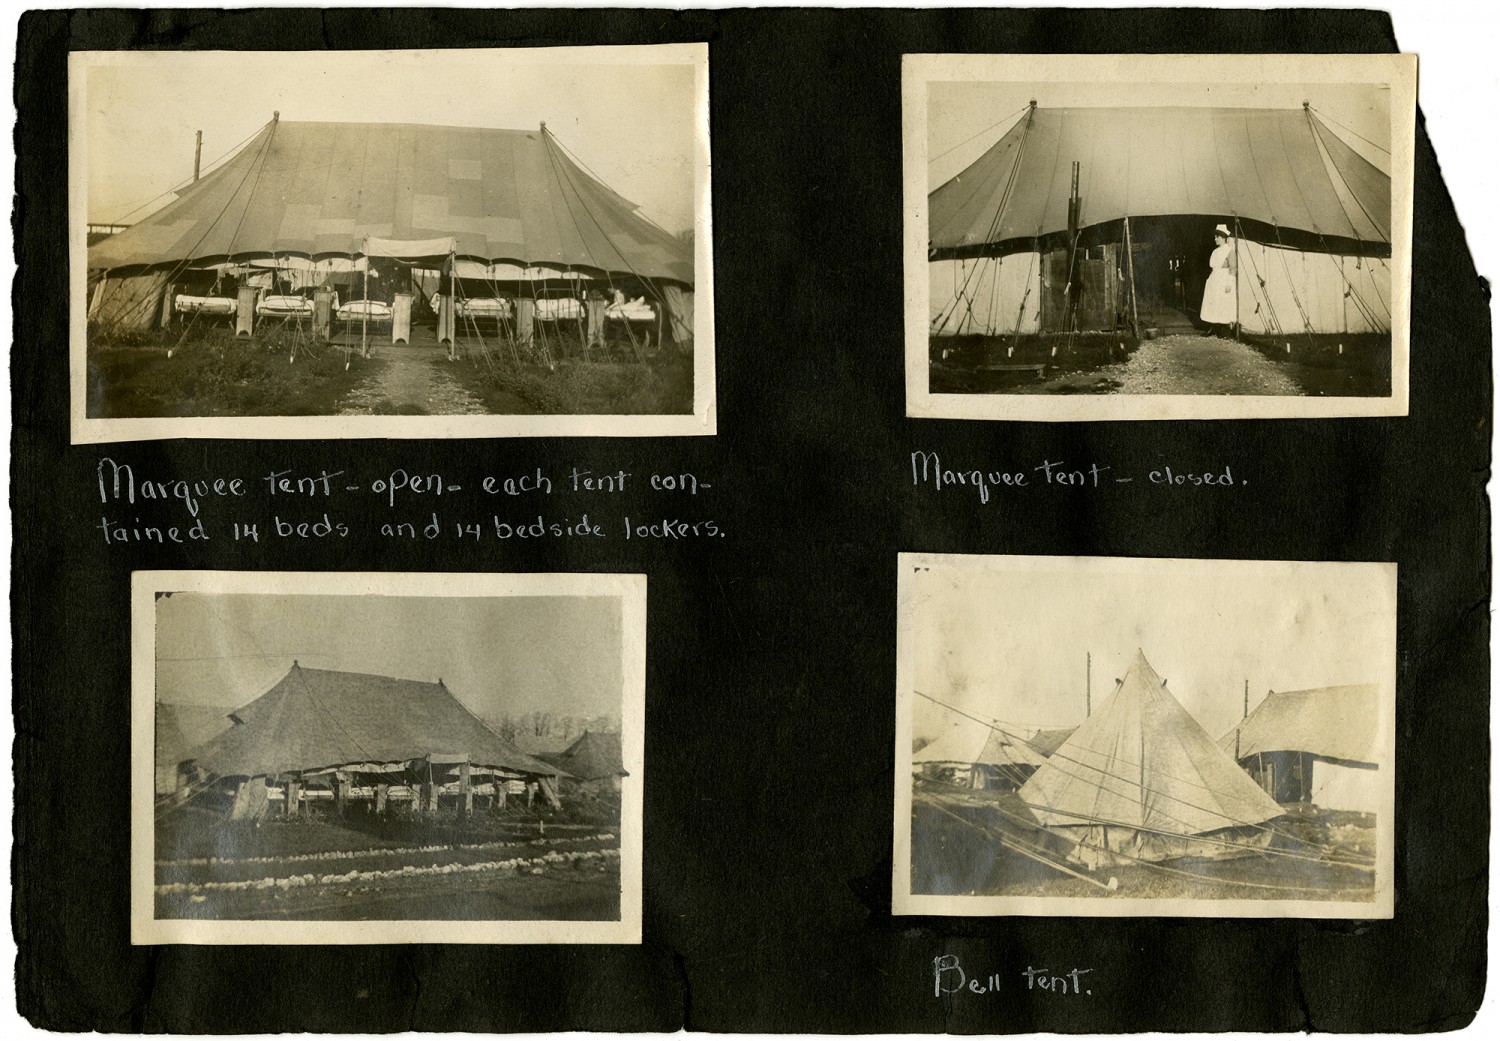 Marquee tent - open - each tent con-
tained 14 beds and 14 bedside lockers.
Marquee tent - closed.
Bell tent.